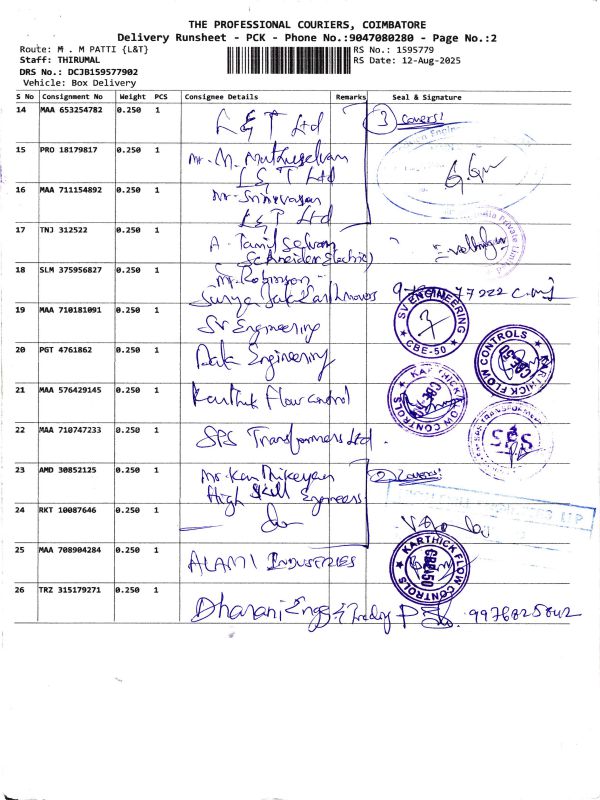 THE PROFESSIONAL COURIERS, COIMBATORE
Delivery Runsheet - PCK - Phone No.:9047080280 - Page No.:2
Route: M . M PATTI {L&T} RS No.: 1595779
Staff: THIRUMAL RS Date: 12-Aug-2025
DRS No.: DCJB159577902
Vehicle: Box Delivery
S No Consignment No Weight PCS Consignee Details Remarks Seal & Signature
14 MAA 653254782 0.250 1 L&T Ltd 3 covers!
15 PRO 18179817 0.250 1 Mr. M. Muthuselvam
L&T Ltd
16 MAA 711154892 0.250 1 Mr. Srinivasan
L&T Ltd
17 TNJ 312522 0.250 1 A. Tamil Selvam
Schneider Electric
18 SLM 375956827 0.250 1 Mr. Robinson
Surya
19 MAA 710181091 0.250 1 SV Engineering
SV ENGINEERING
CBE-50
20 PGT 4761862 0.250 1 Engineering
KARTHICK FLOW CONTROLS
21 MAA 576429145 0.250 1 Karthik Flow Control
KARTHICK FLOW CONTROLS
22 MAA 710747233 0.250 1 SPS Transformers Ltd.
SPS
23 AMD 30852125 0.250 1 Mr. Karthikeyan 2 Covers!
High Skill Engineers
24 RKT 10087646 0.250 1 do
25 MAA 708904284 0.250 1 ALAMI INDUSTRIES
KARTHICK FLOW CONTROLS
CBE-50
26 TRZ 315179271 0.250 1 Dharani Engg & Trading 9976825842